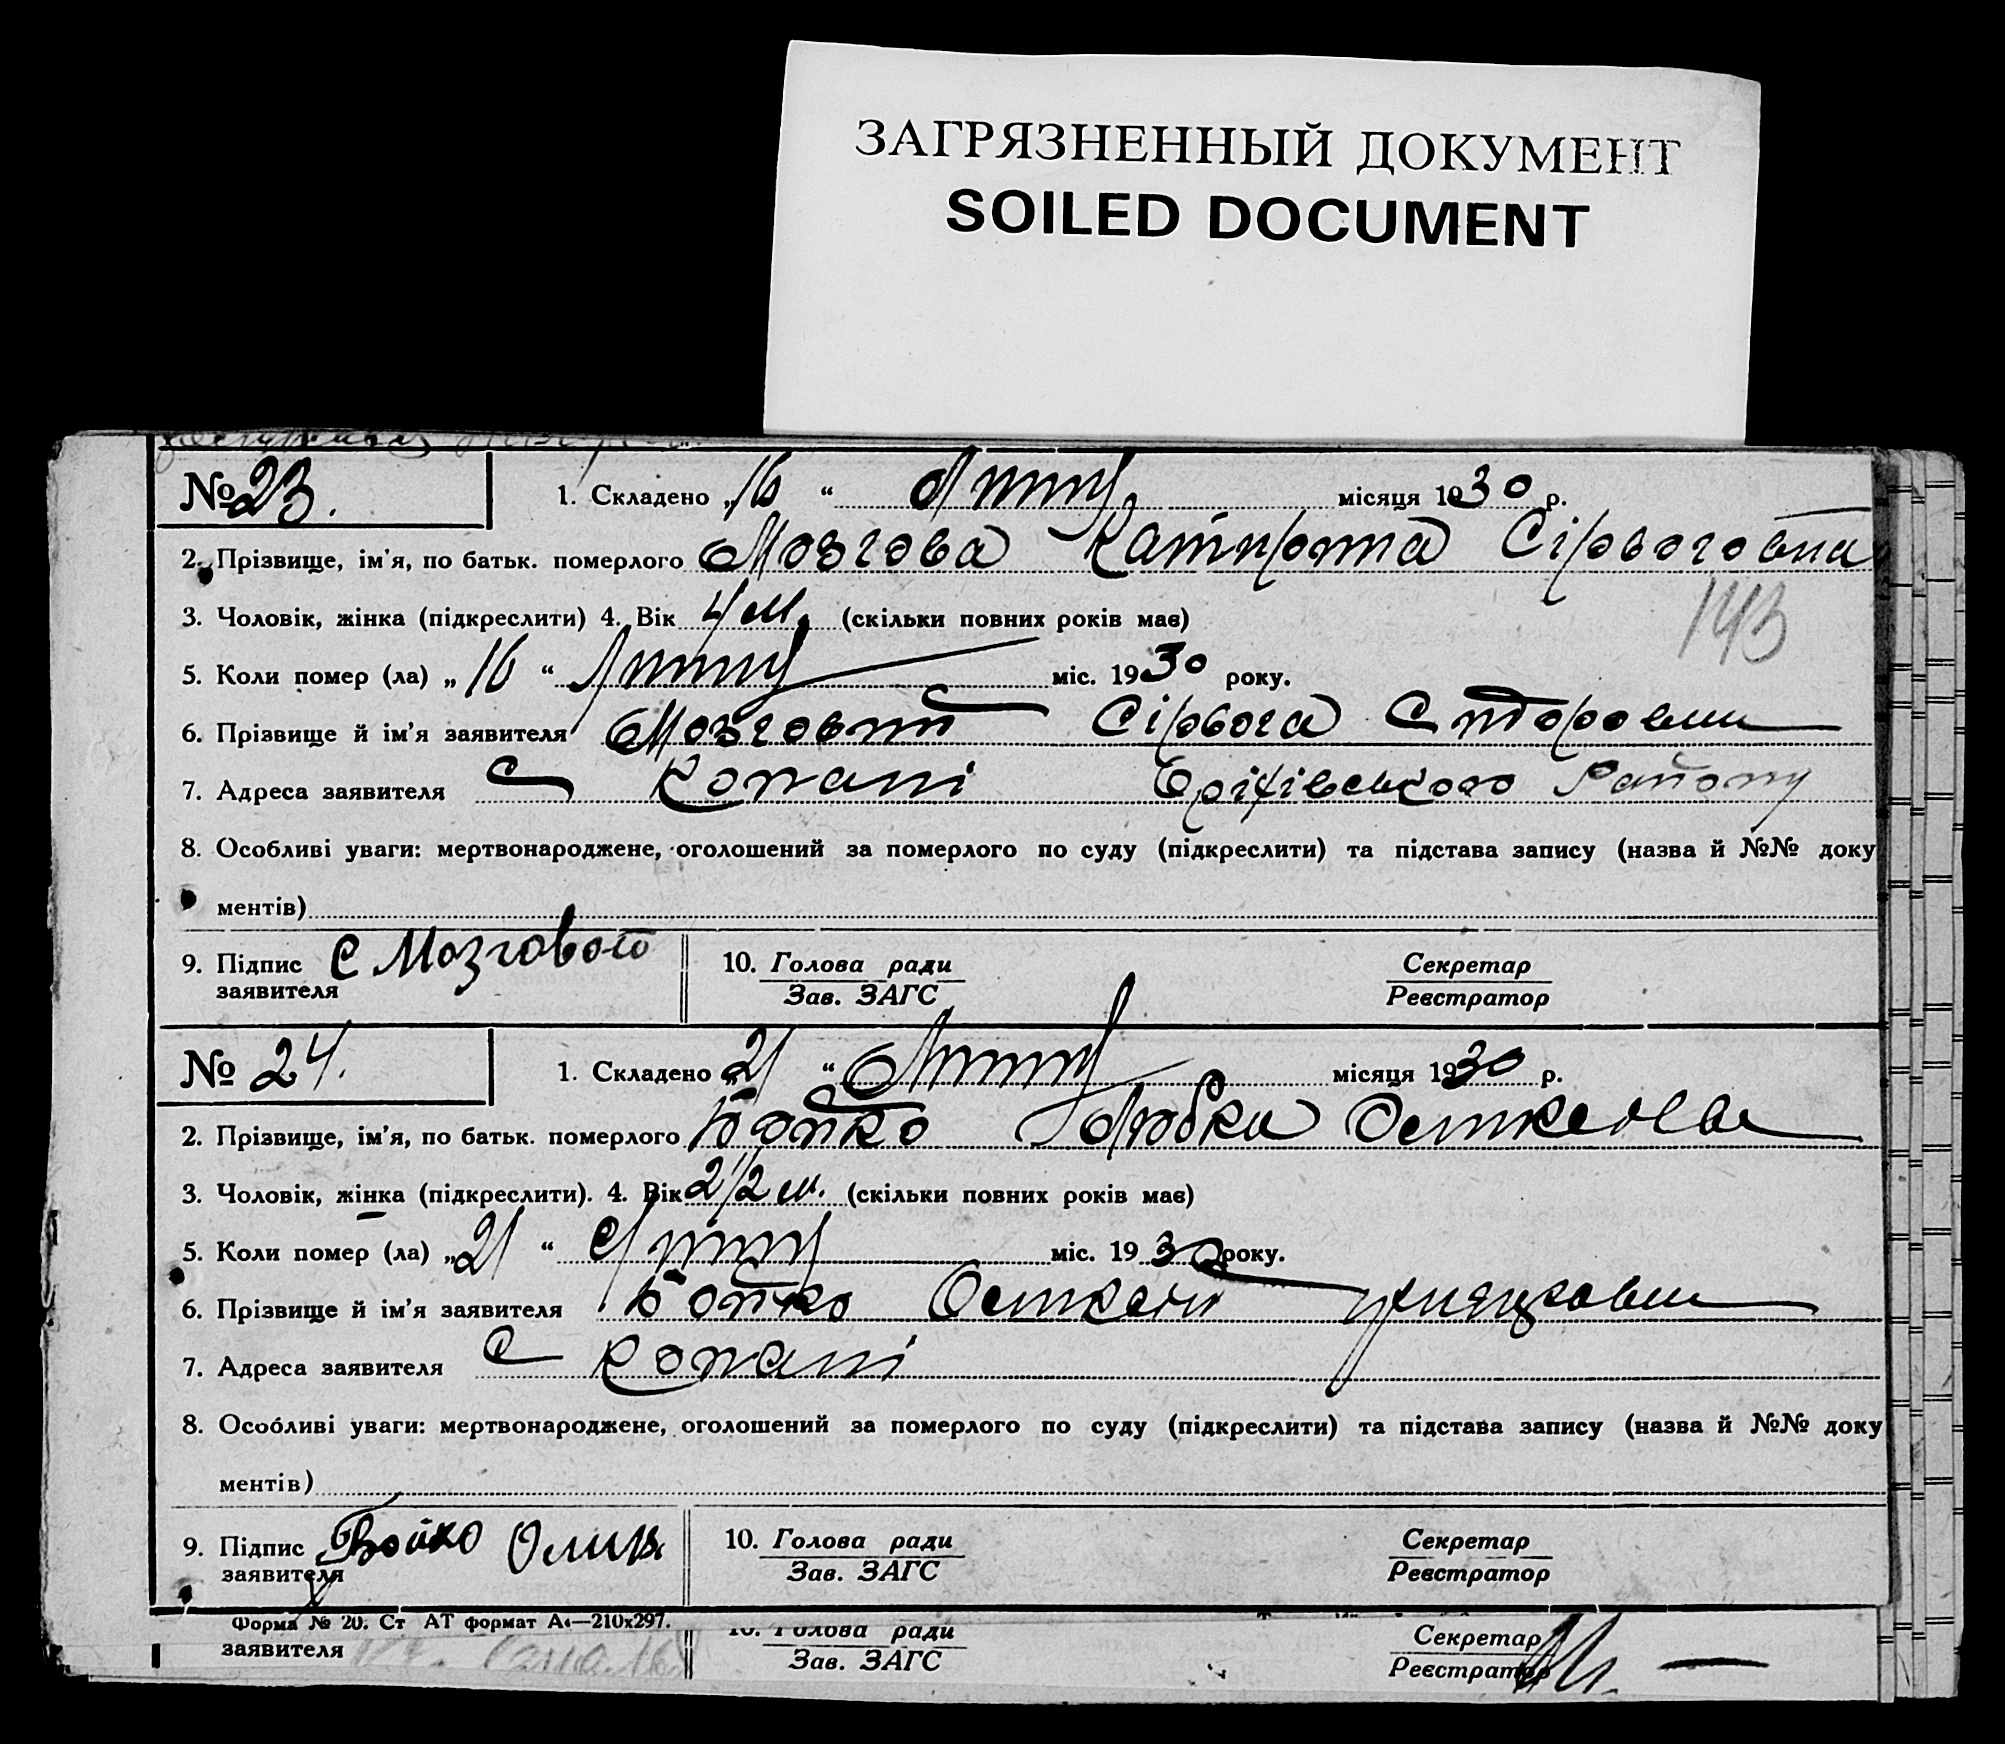 ЗАГРЯЗНЕННЫЙ ДОКУМЕНТ
SOILED DOCUMENT
№ 23.
1. Складено „16“ місяця 1930 р.
2. Прізвище, ім'я, по батьк. померлого Мозгова
143
3. Чоловік, жінка (підкреслити) 4. Вік 4 м. (скільки повних років має)
5. Коли помер (ла) „16“ міс. 1930 року.
6. Прізвище й ім'я заявителя Мозговий
7. Адреса заявителя с Копані Оріхівського Району
8. Особливі уваги: мертвонароджене, оголошений за померлого по суду (підкреслити) та підстава запису (назва й №№ доку
ментів)
9. Підпис С Мозговой
заявителя
10. Голова ради
Зав. ЗАГС
Секретар
Реєстратор
№ 24.
1. Складено „21“ місяця 1930 р.
2. Прізвище, ім'я, по батьк. померлого Бойко Любка
3. Чоловік, жінка (підкреслити). 4. Вік 2 1/2 м. (скільки повних років має)
5. Коли помер (ла) „21“ міс. 1930 року.
6. Прізвище й ім'я заявителя Бойко
7. Адреса заявителя с Копані
8. Особливі уваги: мертвонароджене, оголошений за померлого по суду (підкреслити) та підстава запису (назва й №№ доку
ментів)
9. Підпис Бойко
заявителя
10. Голова ради
Зав. ЗАГС
Секретар
Реєстратор
Форма № 20. Ст АТ формат А4—210x297.
заявителя
10. Голова ради
Зав. ЗАГС
Секретар
Реєстратор